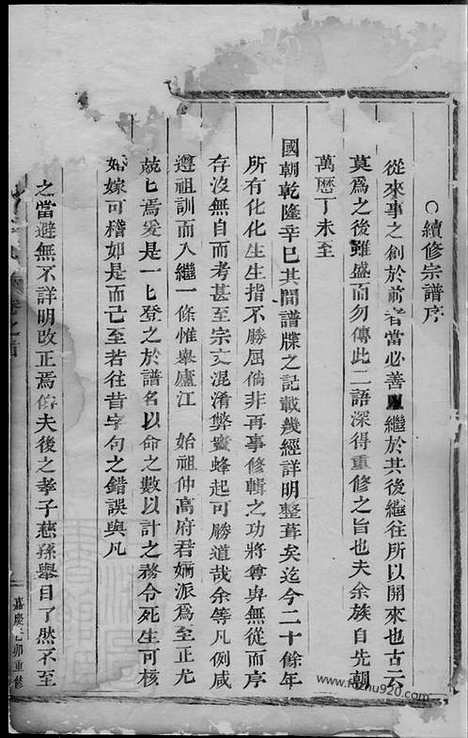 ○續修宗譜序
從來事之創於前者當必善繼於其後繼往所以開來也古云
莫爲之後雖盛而勿傳此二語深得重修之旨也夫余族自先朝
萬曆丁未至
國朝乾隆辛巳其間譜牒之記載幾經詳明整葺矣迄今二十餘年
所有化化生生指不勝屈倘非再事修輯之功將尊卑無從而序
存沒無自而考甚至宗支混淆弊竇蜂起可勝道哉余等凡例咸
遵祖訓而入繼一條惟舉廬江 始祖仲高府君嫡派爲至正尤
兢匕焉爰是一匕登之於譜名以命之數以計之務令死生可核
始嫁可稽如是而已至若往昔字句之錯誤與凡
之當避無不詳明改正焉俾夫後之孝子慈孫舉目了然不至
卷之首
嘉慶己卯重修
www.fozhu920.com